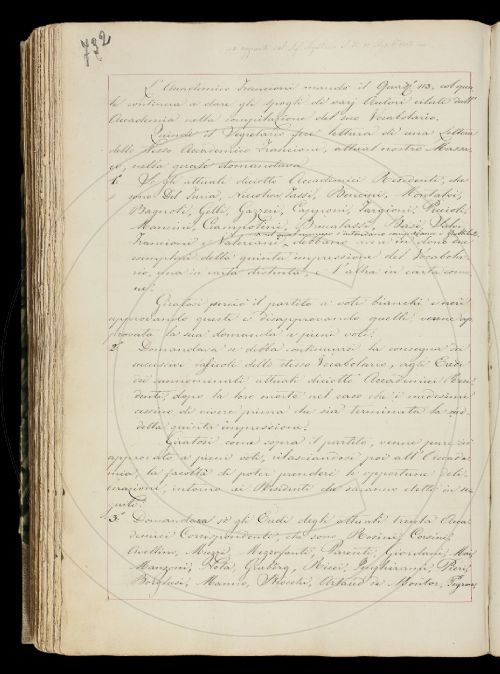 732
L'Accademico Francioni mandò il Quad.º 113, col qua-
le continua a dare gli spogli di varj Autori citati dall'
Accademia nella compilazione del suo Vocabolario.
Quindi il Segretario fece lettura di una Lettera
dello stesso Accademico Francioni, attual nostro Massa-
jo, nella quale domandava
1.º Se gli attuali diciotto Accademici Residenti, che
sono Del Furia, Niccolini, Tassi, Bencini, Montalvi,
Bagnoli, Gelli, Gazzeri, Capponi, Targioni, Puccioli,
Mancini, Ciampolini, Brucalassi, Basi,
Francioni e Valeriani, debbano aver in dono due
esemplari della quinta impressione del Vocabola-
rio, una in carta distinta, e l'altra in carta comu-
ne?
Giratosi perciò il partito a voti bianchi e neri
approvando questi e disapprovando quelli, venne ap-
provata la sua domanda a pieni voti.
2.º Domandava se debba continuarsi la consegna de'
successivi fascicoli dello stesso Vocabolario, agli Eredi
dei summentovati attuali diciotto Accademici Resi-
denti, dopo la loro morte nel caso che i medesimi
cessino di vivere prima che sia terminata la sud-
detta quinta impressione?
Giratosi come sopra il partito, venne pure
approvato a pieni voti, rilasciandosi poi all'Accade-
mia, la facoltà di poter prendere le opportune deli-
berazioni, intorno ai Residenti che saranno eletti in se-
guito.
3.º Domandava se gli Eredi degli attuali trenta Acca-
demici Corrispondenti, che sono Rosini, Corsini,
Avellino, Muzzi, Mezzofanti, Parenti, Giordani, Mai,
Manzoni, Nota, Graberg, Ricci, Inghirami, Pieri,
Borghesi, Manno, Rocchi, Artaud de Montor, Peyron,